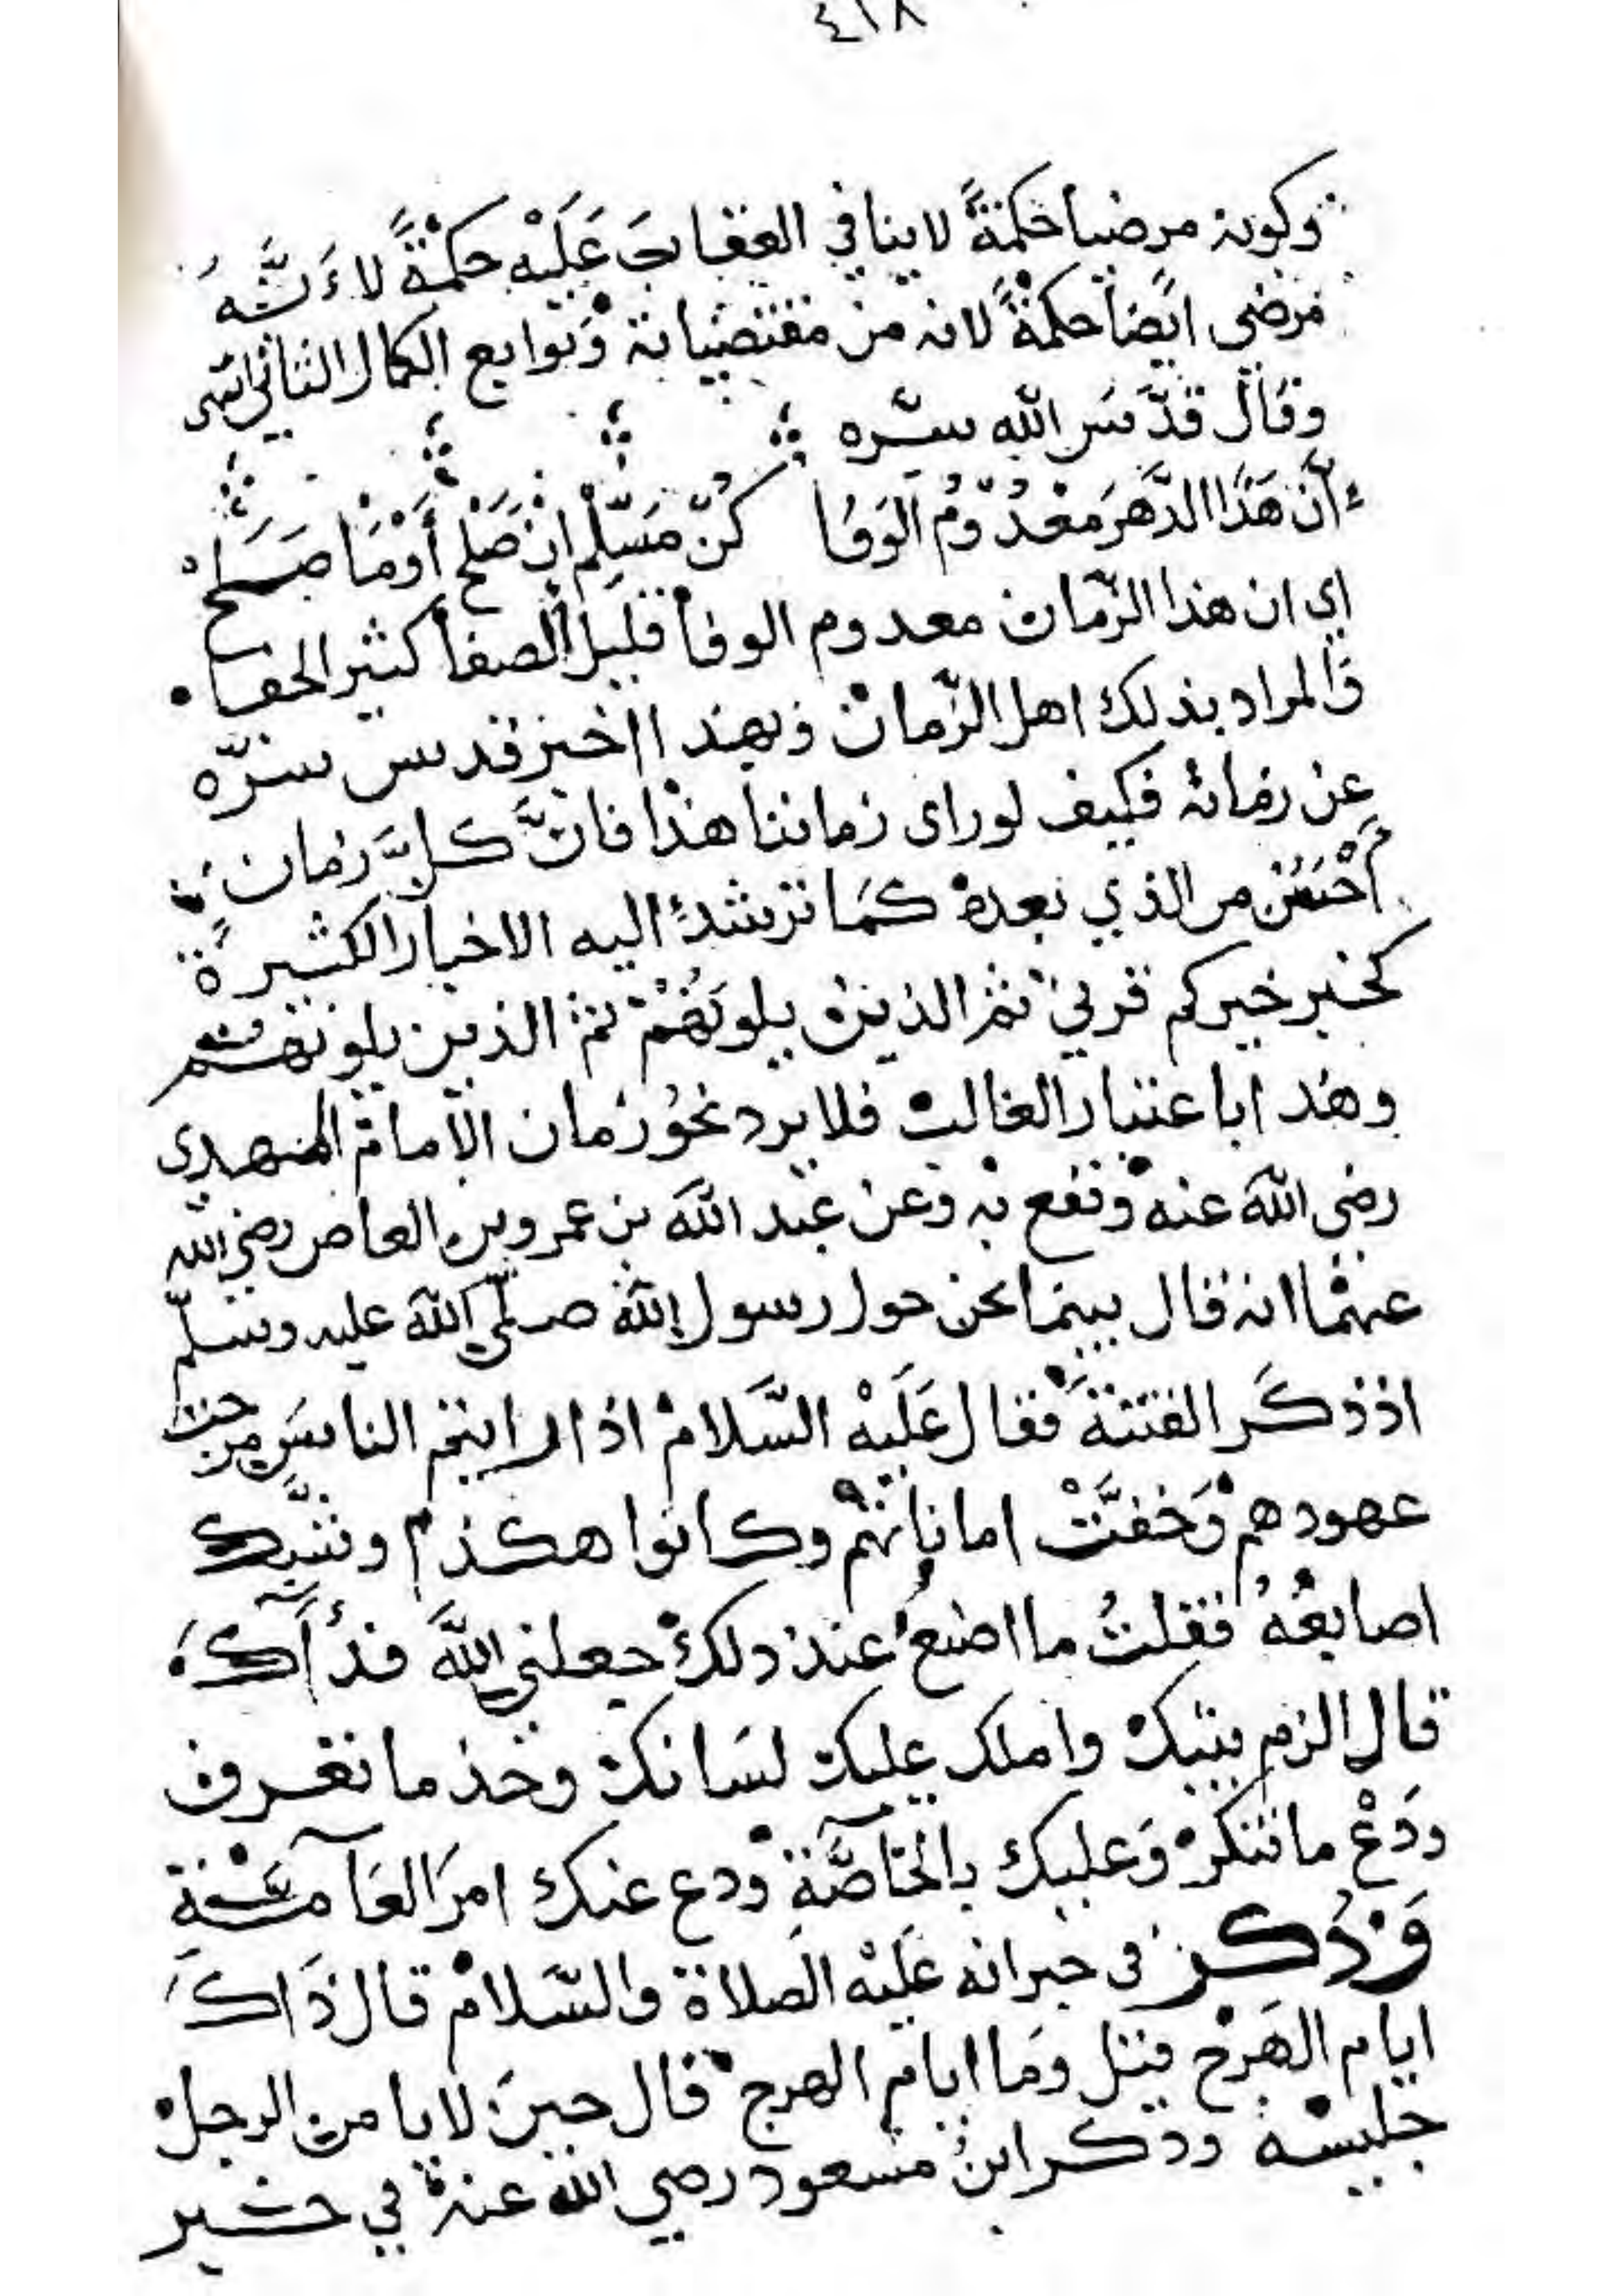 ٤١٨
وكونه مرضيا حكمةً لا ينافي العقاب عَلَيْه حكمْةً لاءَنَّهُ
مرضي ايضًا حكمةً لانه من مقتضياته وَتوابع الكمال الثاني انتهى
وقال قدَّس الله سرّه
ءانَّ هَذَا الدَّهرَ مَعْدُوْمُ الوَفَا كُنْ مَسَلِّمْ اِنْ صَلَحْ أَوْ مَا صَلَحْ
اي ان هذا الزّمان معدوم الوفا قليل الصفا كثير الجفا
وَالمراد بذلك اهل الزّمان وَبهذا اخبر قدس سرّه
عن زمانه فكيف لو راى زماننا هذا فانَّ كلَّ زمان
أَحْسَن من الذي بعده كمَا ترشدُ اليه الاخبار الكثيرة
كخبر خيركم قرني ثم الذين يلونَهُمْ ثم الذين يلونهم
وهذا باعتبار الغالب فلا يرد نحوُ زمان الامام المهدى
رضي اللهَ عنه ونفع به وعن عبد اللهَ بن عمرو بن العاص رضي الله
عنهْما انه قال بينما نحن حول رسول الله صلّى اللهَ عليه وسلّم
اذ ذكَر الفتنةَ فقال عَلَيْه السَّلام اذا رايتم الناسَ مرجت
عهودهم وَخفَّتْ اماناتهمْ وكانوا هكذا وشبّك
اصابعُهُ فقلتُ ما اصنعُ عند ذلك جعلني اللهَ فدأَكَ
قال الزم بيتك واملك عليك لسَانك وخذ ما تعرف
ودَعْ ما تنكر وَعليك بالخآصَّةِ ودع عنك امرَ العَآمَّةِ
وَذُكر في خبر انه عَلَيْه الصلاة والسَّلام قال ذَاكَ
ايام الهَرْج قيل وَما ايام الهرج قال حينَ لا يامن الرجل
جليسه وذكر ابنُ مسعود رضي الله عنه في خبر